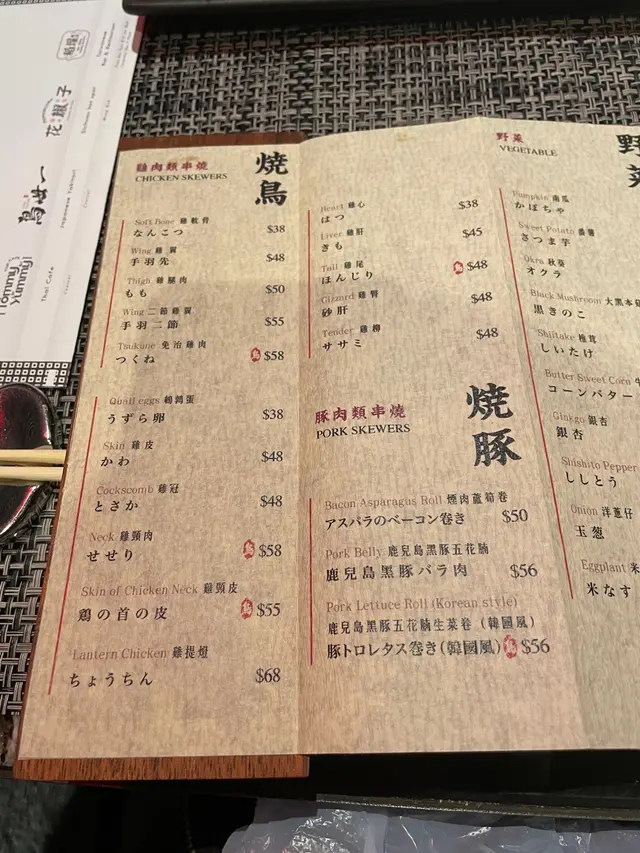 花椒子
鳥世一
Tommy Yummy!
Thai Cafe
雞肉類串燒
CHICKEN SKEWERS
焼鳥
Soft Bone 雞軟骨
なんこつ $38
Wing 雞翼
手羽先 $48
Thigh 雞腿肉
もも $50
Wing 二節雞翼
手羽二節 $55
Tsukune 免治雞肉
つくね $58
Quail eggs 鵪鶉蛋
うずら卵 $38
Skin 雞皮
かわ $48
Cockscomb 雞冠
とさか $48
Neck 雞頸肉
せせり $58
Skin of Chicken Neck 雞頸皮
鶏の首の皮 $55
Lantern Chicken 雞提燈
ちょうちん $68
Heart 雞心
はつ $38
Liver 雞肝
きも $45
Tail 雞尾
ぼんじり $48
Gizzard 雞腎
砂肝 $48
Tender 雞柳
ササミ $48
豚肉類串燒
PORK SKEWERS
焼豚
Bacon Asparagus Roll 煙肉蘆筍卷
アスパラのベーコン巻き $50
Pork Belly 鹿兒島黑豚五花腩
鹿兒島黒豚バラ肉 $56
Pork Lettuce Roll (Korean style)
鹿兒島黑豚五花腩生菜卷 (韓國風)
豚トロレタス巻き(韓國風) $56
野菜
VEGETABLE
野菜
Pumpkin 南瓜
かぼちゃ
Sweet Potato 番薯
さつま芋
Okra 秋葵
オクラ
Black Mushroom 大黑本
黒きのこ
Shiitake 椎茸
しいたけ
Butter Sweet Corn
コーンバター
Ginkgo 銀杏
銀杏
Shishito Pepper
ししとう
Onion 洋蔥仔
玉葱
Eggplant 米
米なす